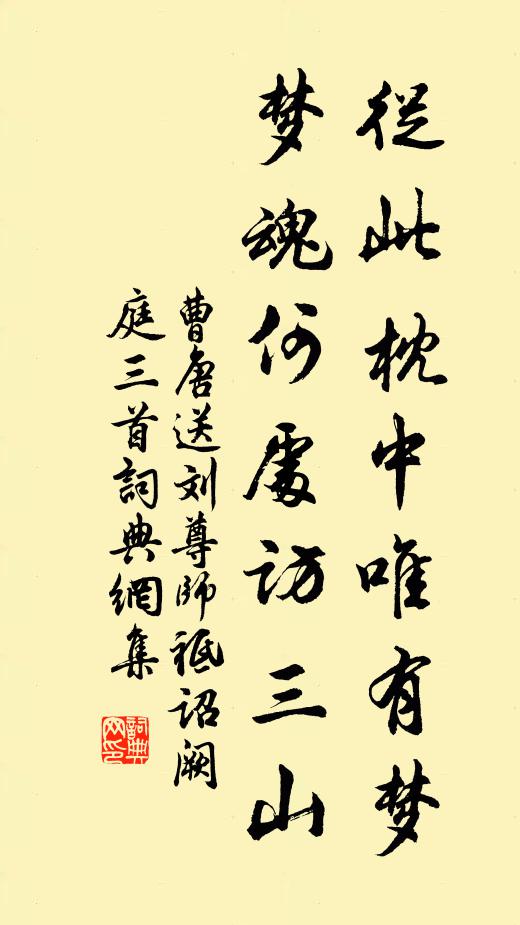 從此枕中唯有梦
梦魂何處访三山
曹唐送刘尊師祗诏阙
庭三首詞典網集
詞典
网印